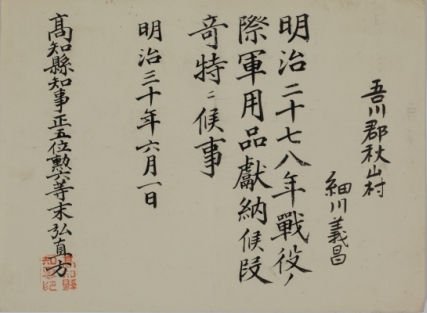 吾川郡秋山村
細川義昌
明治二十七八年戰役ノ
際軍用品獻納候段
竒特ニ候事
明治三十年六月一日
高知縣知事正五位勲六等末弘直方